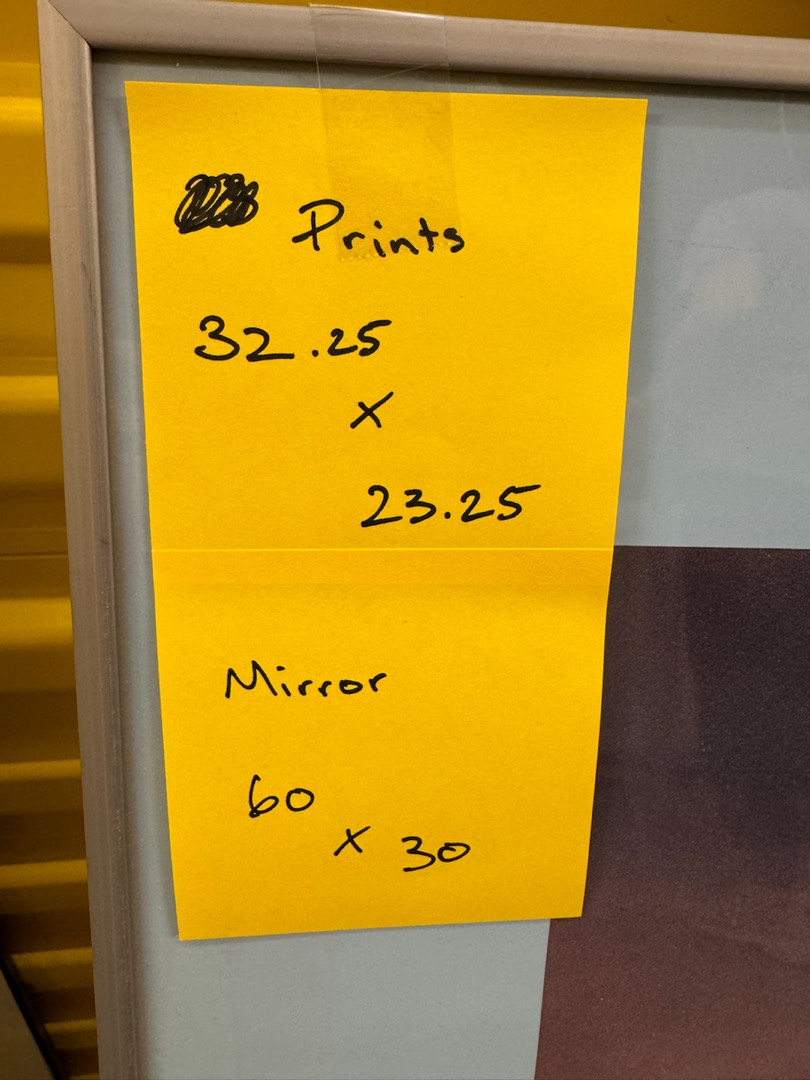 Prints
32.25
x
23.25
Mirror
60
x 30